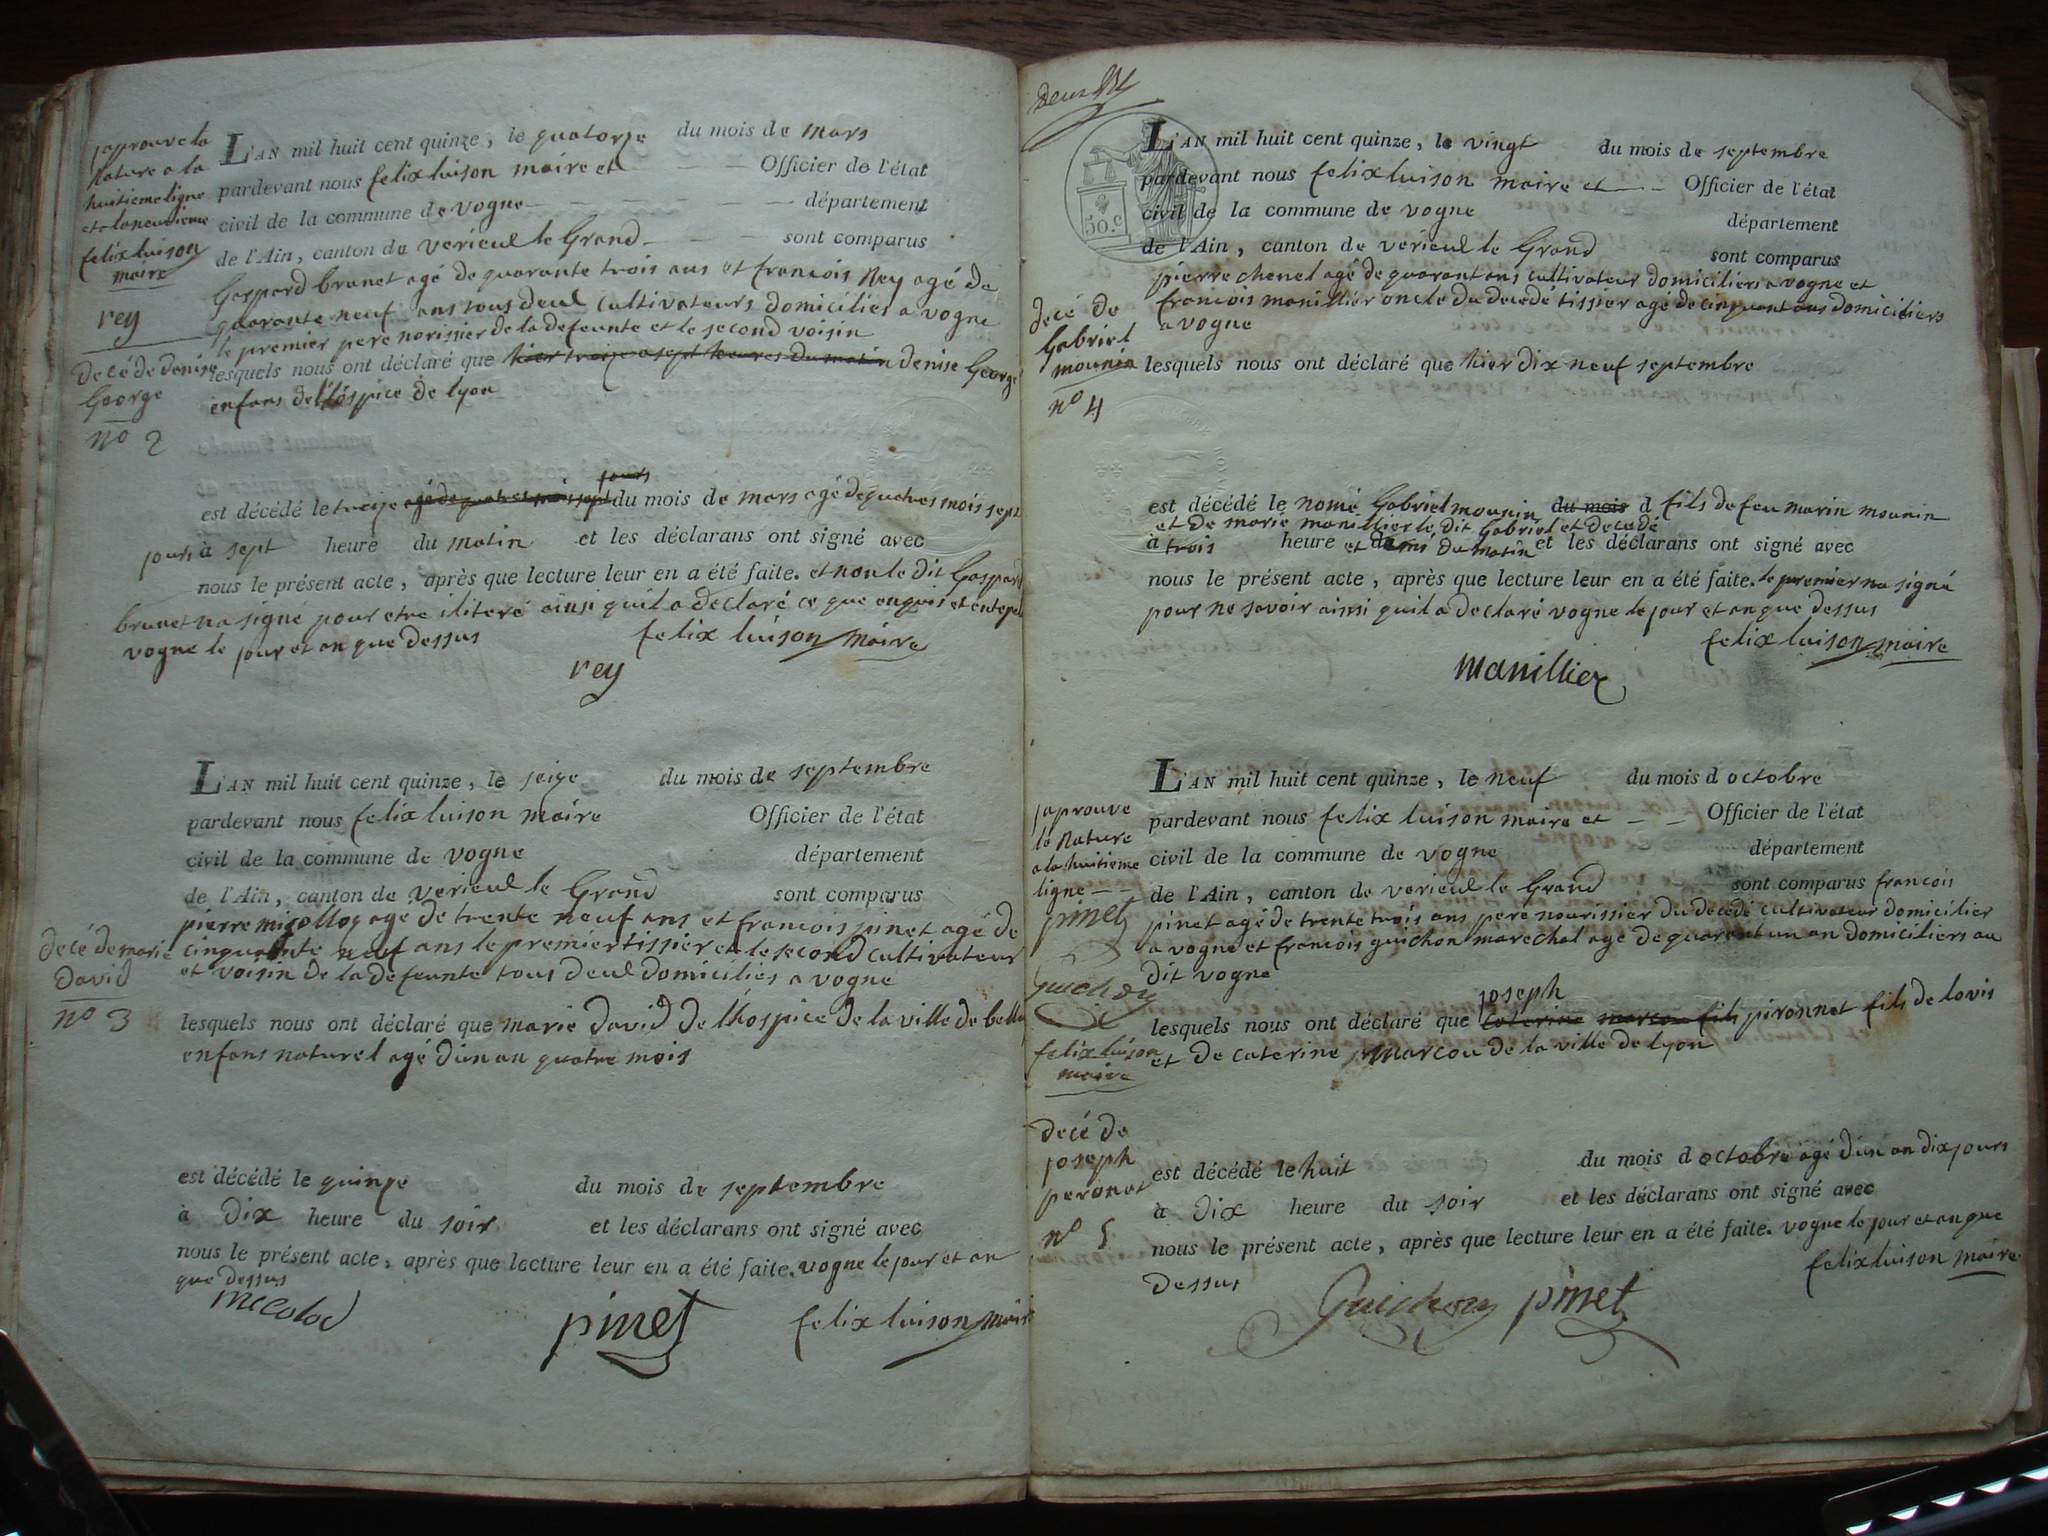 japrouve la
Rature a la
huitieme ligne
et a la neuvieme
felix luison
maire
rey
decé de denise
George
no 2
L'AN mil huit cent quinze, le quatorze du mois de mars
pardevant nous felix luison maire et Officier de l'état
civil de la commune de vogne département
de l'Ain, canton de verieul le Grand sont comparus
Gaspard brunet agé de quarante trois ans et francois Rey agé de
quarante neuf ans tous deul cultivateurs domiciliés a vogne
le premier pere norissier de la defeunte et le second voisin
lesquels nous ont déclaré que hier treize a sept heures du matin denise George
enfans de l'hospice de lyon
jours
est décédé le treize agé de quatres mois sept du mois de mars agé de quatres mois sept
jours à sept heure du matin et les déclarans ont signé avec
nous le présent acte, après que lecture leur en a été faite. et non le dit Gaspard
brunet na signé pour etre ilitéré ainsi quil a declaré ce que enquis et
vogne le jour et an que dessus felix luison maire
rey
decé de marie
david
no 3
L'AN mil huit cent quinze, le seize du mois de septembre
pardevant nous felix luison maire Officier de l'état
civil de la commune de vogne département
de l'Ain, canton de verieul le Grand sont comparus
pierre micollog agé de trente neuf ans et francois pinet agé de
cinquante neuf ans le premier tissier et le second cultivateur
et voisin de la defeunte tous deul domiciliés a vogne
lesquels nous ont déclaré que marie david de l'hospice de la ville de belle
enfans naturel agé d'un an quatre mois
est décédé le quinze du mois de septembre
à dix heure du soir et les déclarans ont signé avec
nous le présent acte, après que lecture leur en a été faite. vogne le jour et an
que dessus
micolod pinet felix luison maire
deux
50.c
decé de
Gabriel
mounin
no 4
L'AN mil huit cent quinze, le vingt du mois de septembre
pardevant nous felix luison maire et Officier de l'état
civil de la commune de vogne département
de l'Ain, canton de verieul le Grand sont comparus
pierre chenel agé de quarant ans cultivateur domiciliers a vogne et
francois manillier oncle du decedé tissier agé de cinquant ans domiciliers
a vogne
lesquels nous ont déclaré que hier dix neuf septembre
est décédé le nomé Gabriel mounin du mois d fils de feu marin mounin
et de marie manillier le dit Gabriel et decedé
à trois heure et demi du matin et les déclarans ont signé avec
nous le présent acte, après que lecture leur en a été faite. le premier na signé
pour ne savoir ainsi quil a declaré vogne le jour et an que dessus
felix luison maire
manillier
japrouve
la Rature
a la huitieme
ligne
pinet
guichon
felix luison
maire
decé de
joseph
peronet
no 5
L'AN mil huit cent quinze, le neuf du mois d octobre
pardevant nous felix luison maire et Officier de l'état
civil de la commune de vogne département
de l'Ain, canton de verieul le Grand sont comparus francois
pinet agé de trente trois ans peré nourissier du decedé cultivateur domicilier
a vogne et francois guichon marechal agé de quarant un an domiciliers au
dit vogne
joseph
lesquels nous ont déclaré que caterine marcou fils pironnet fils de lovis
et de caterine marcou de la ville de lyon
est décédé le huit du mois d octobre agé d'un an dix jours
à dix heure du soir et les déclarans ont signé avec
nous le présent acte, après que lecture leur en a été faite. vogne le jour et an que
dessus felix luison maire
Guichon pinet